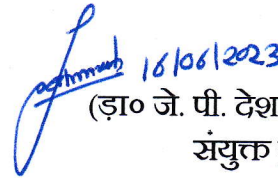 16/06/2023
(ड़ा० जे. पी. देश
संयुक्त